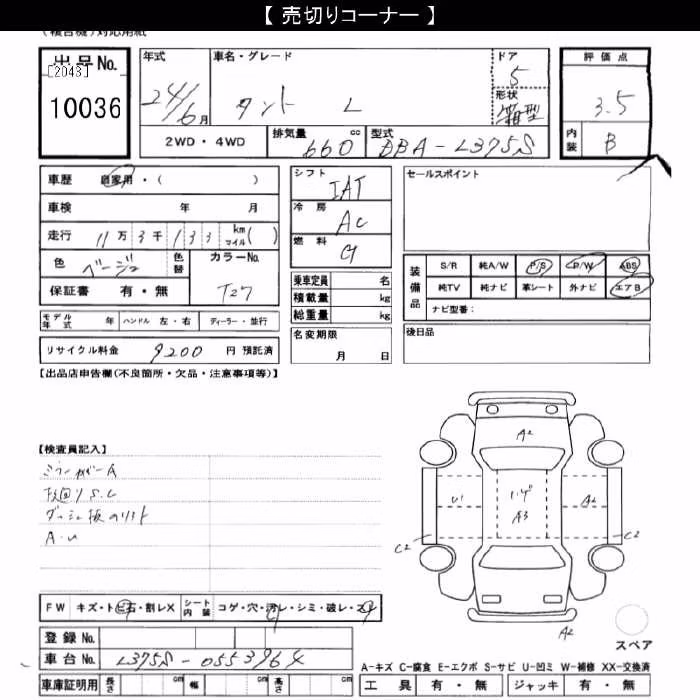 【 売切りコーナー 】
(複合機)対応用紙
出品No.
[2043]
10036
年式
24/6月
車名・グレード
タント L
ドア
5
形状
箱型
評価点
3.5
内装
B
2WD・4WD
排気量 660 cc
型式 DBA-L375S
車歴 自家用・( )
車検 年 月
走行 11万3千133 km マイル( )
色 ベージュ
色替
カラーNo. T27
保証書 有・無
シフト IAT
冷房 AC
燃料 G
乗車定員 名
積載量 kg
総重量 kg
名変期限
月 日
セールスポイント
装備品
S/R 純A/W P/S P/W ABS
純TV 純ナビ 革シート 外ナビ エアB
ナビ型番:
後日品
モデル年式 年 ハンドル 左・右 ディーラー・並行
リサイクル料金 9200 円 預託済
【出品店申告欄(不良箇所・欠品・注意事項等)】
【検査員記入】
ミラーカバーA
下回りS.C
A.U
A2
U1
A3
A2
C2
C2
A2
スペア
FW キズ・トビ石・割レX
シート内装 コゲ・穴・汚レ・シミ・破レ・スレ
登録No.
車台No. L375S-0553964
車庫証明用 長さ cm 幅 cm 高さ cm
A-キズ C-腐食 E-エクボ S-サビ U-凹ミ W-補修 XX-交換済
工具 有・無 ジャッキ 有・無